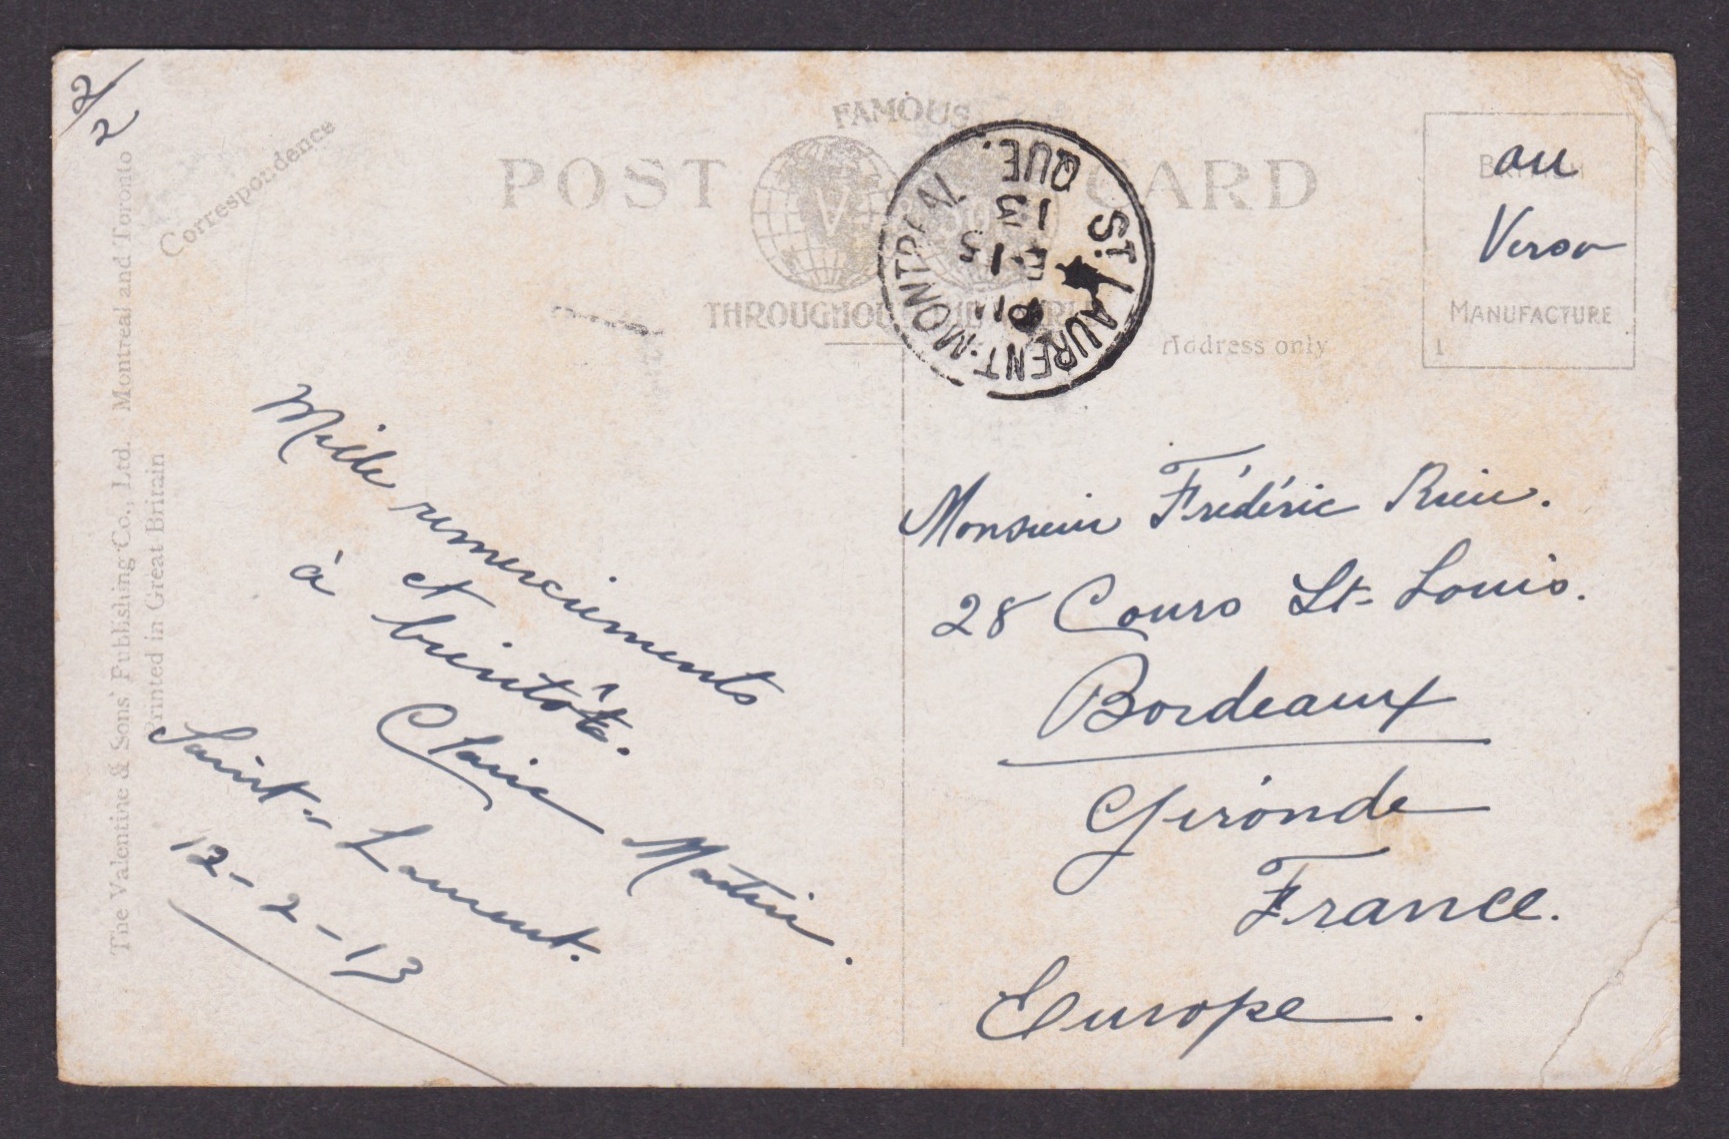 2/2
Correspondence
FAMOUS
POST CARD
THROUGHOUT THE WORLD
ST. LAURENT-MONTREAL
QUE.
13
au
Verso
MANUFACTURE
Address only
The Valentine & Sons' Publishing Co., Ltd. Montreal and Toronto
Printed in Great Britain
Mille remerciements
et
à bientôt.
Claire Martin.
Saint-Laurent.
12-2-13
Monsieur Frédéric
28 Cours St-Louis.
Bordeaux
Gironde
France.
Europe.